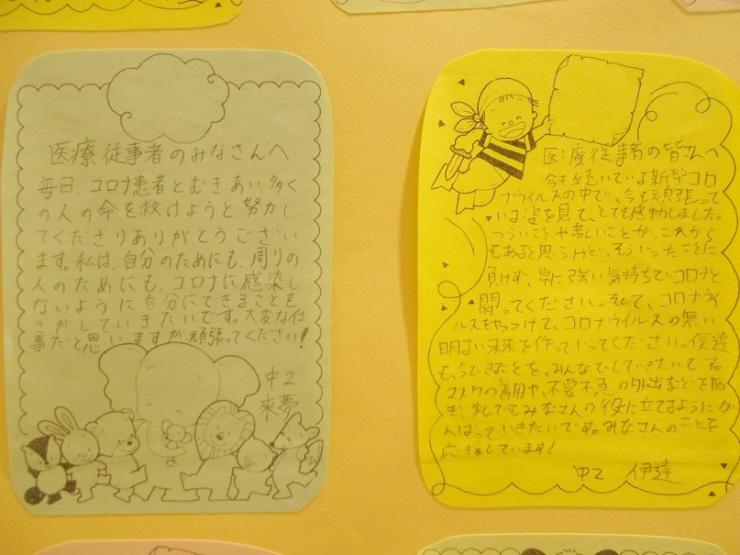 医療従事者のみなさんへ
毎日、コロナ患者とむきあい多く
の人の命を救けようと努力し
てくださりありがとうござい
ます。私は、自分のためにも、周りの
人のためにも、コロナに感染し
ないように自分にできることを
さがしていきたいです。大変な仕
事だと思いますが頑張ってください!
中2
来夢
医療従事者の皆さんへ
今も続いている新型コロ
ナウイルスの中で、今も頑張って
いる姿を見て、とても感動しました。
つらいことや苦しいことが、これから
もあると思うけど、そういったことに
負けず、常に強い気持ちでコロナと
闘ってください。そして、コロナウイ
ルスをやっつけて、コロナウイルスの無い
明るい未来を作っていってください。僕達
も、今できたことを、みんなでしていきたいです。
マスクの着用や、不要不急の外出などを防
ぎ、少しでもみなさんの役に立てるようにが
んばっていきたいです。みなさんのことを
応援しています!
中2 伊達